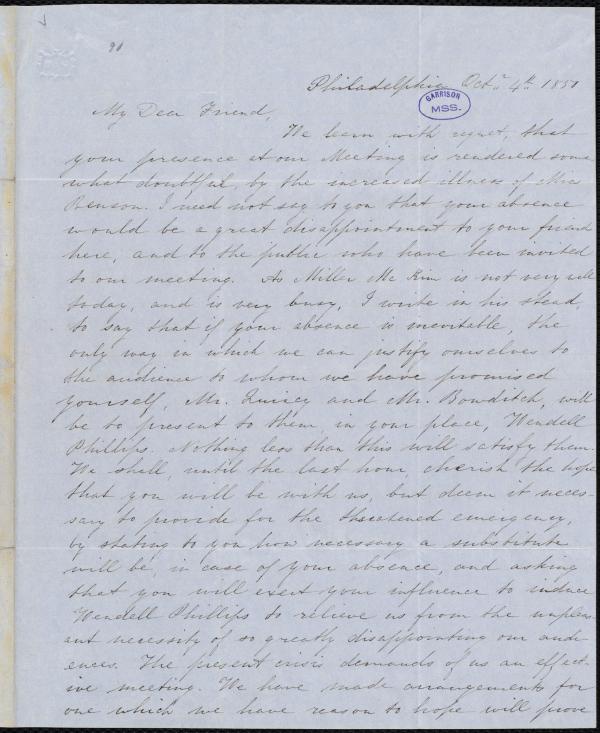 90
Philadelphia Oct. 4th 1850
GARRISON
MSS.
My Dear Friend,
We learn with regret, that
your presence at our Meeting is rendered some
what doubtful, by the increased illness of Mrs
Benson. I need not say to you that your absence
would be a great disappointment to your friends
here, and to the public who have been invited
to our meeting. As Miller Mc Kim is not very well
today, and is very busy, I write in his stead,
to say that if your absence is inevitable, the
only way in which we can justify ourselves to
the audience to whom we have promised
yourself, Mr. Quincy and Mr. Bowditch, will
be to present to them, in your place, Wendell
Phillips. Nothing less than this will satisfy them.
We shall, until the last hour, cherish the hope
that you will be with us, but deem it neces-
sary to provide for the threatened emergency,
by stating to you how necessary a substitute
will be, in case of your absence, and asking
that you will exert your influence to induce
Wendell Phillips to relieve us from the unpleas-
ant necessity of so greatly disappointing our audi-
ences. The present crisis demands of us an effect-
ive meeting. We have made arrangements for
one which we have reason to hope will prove